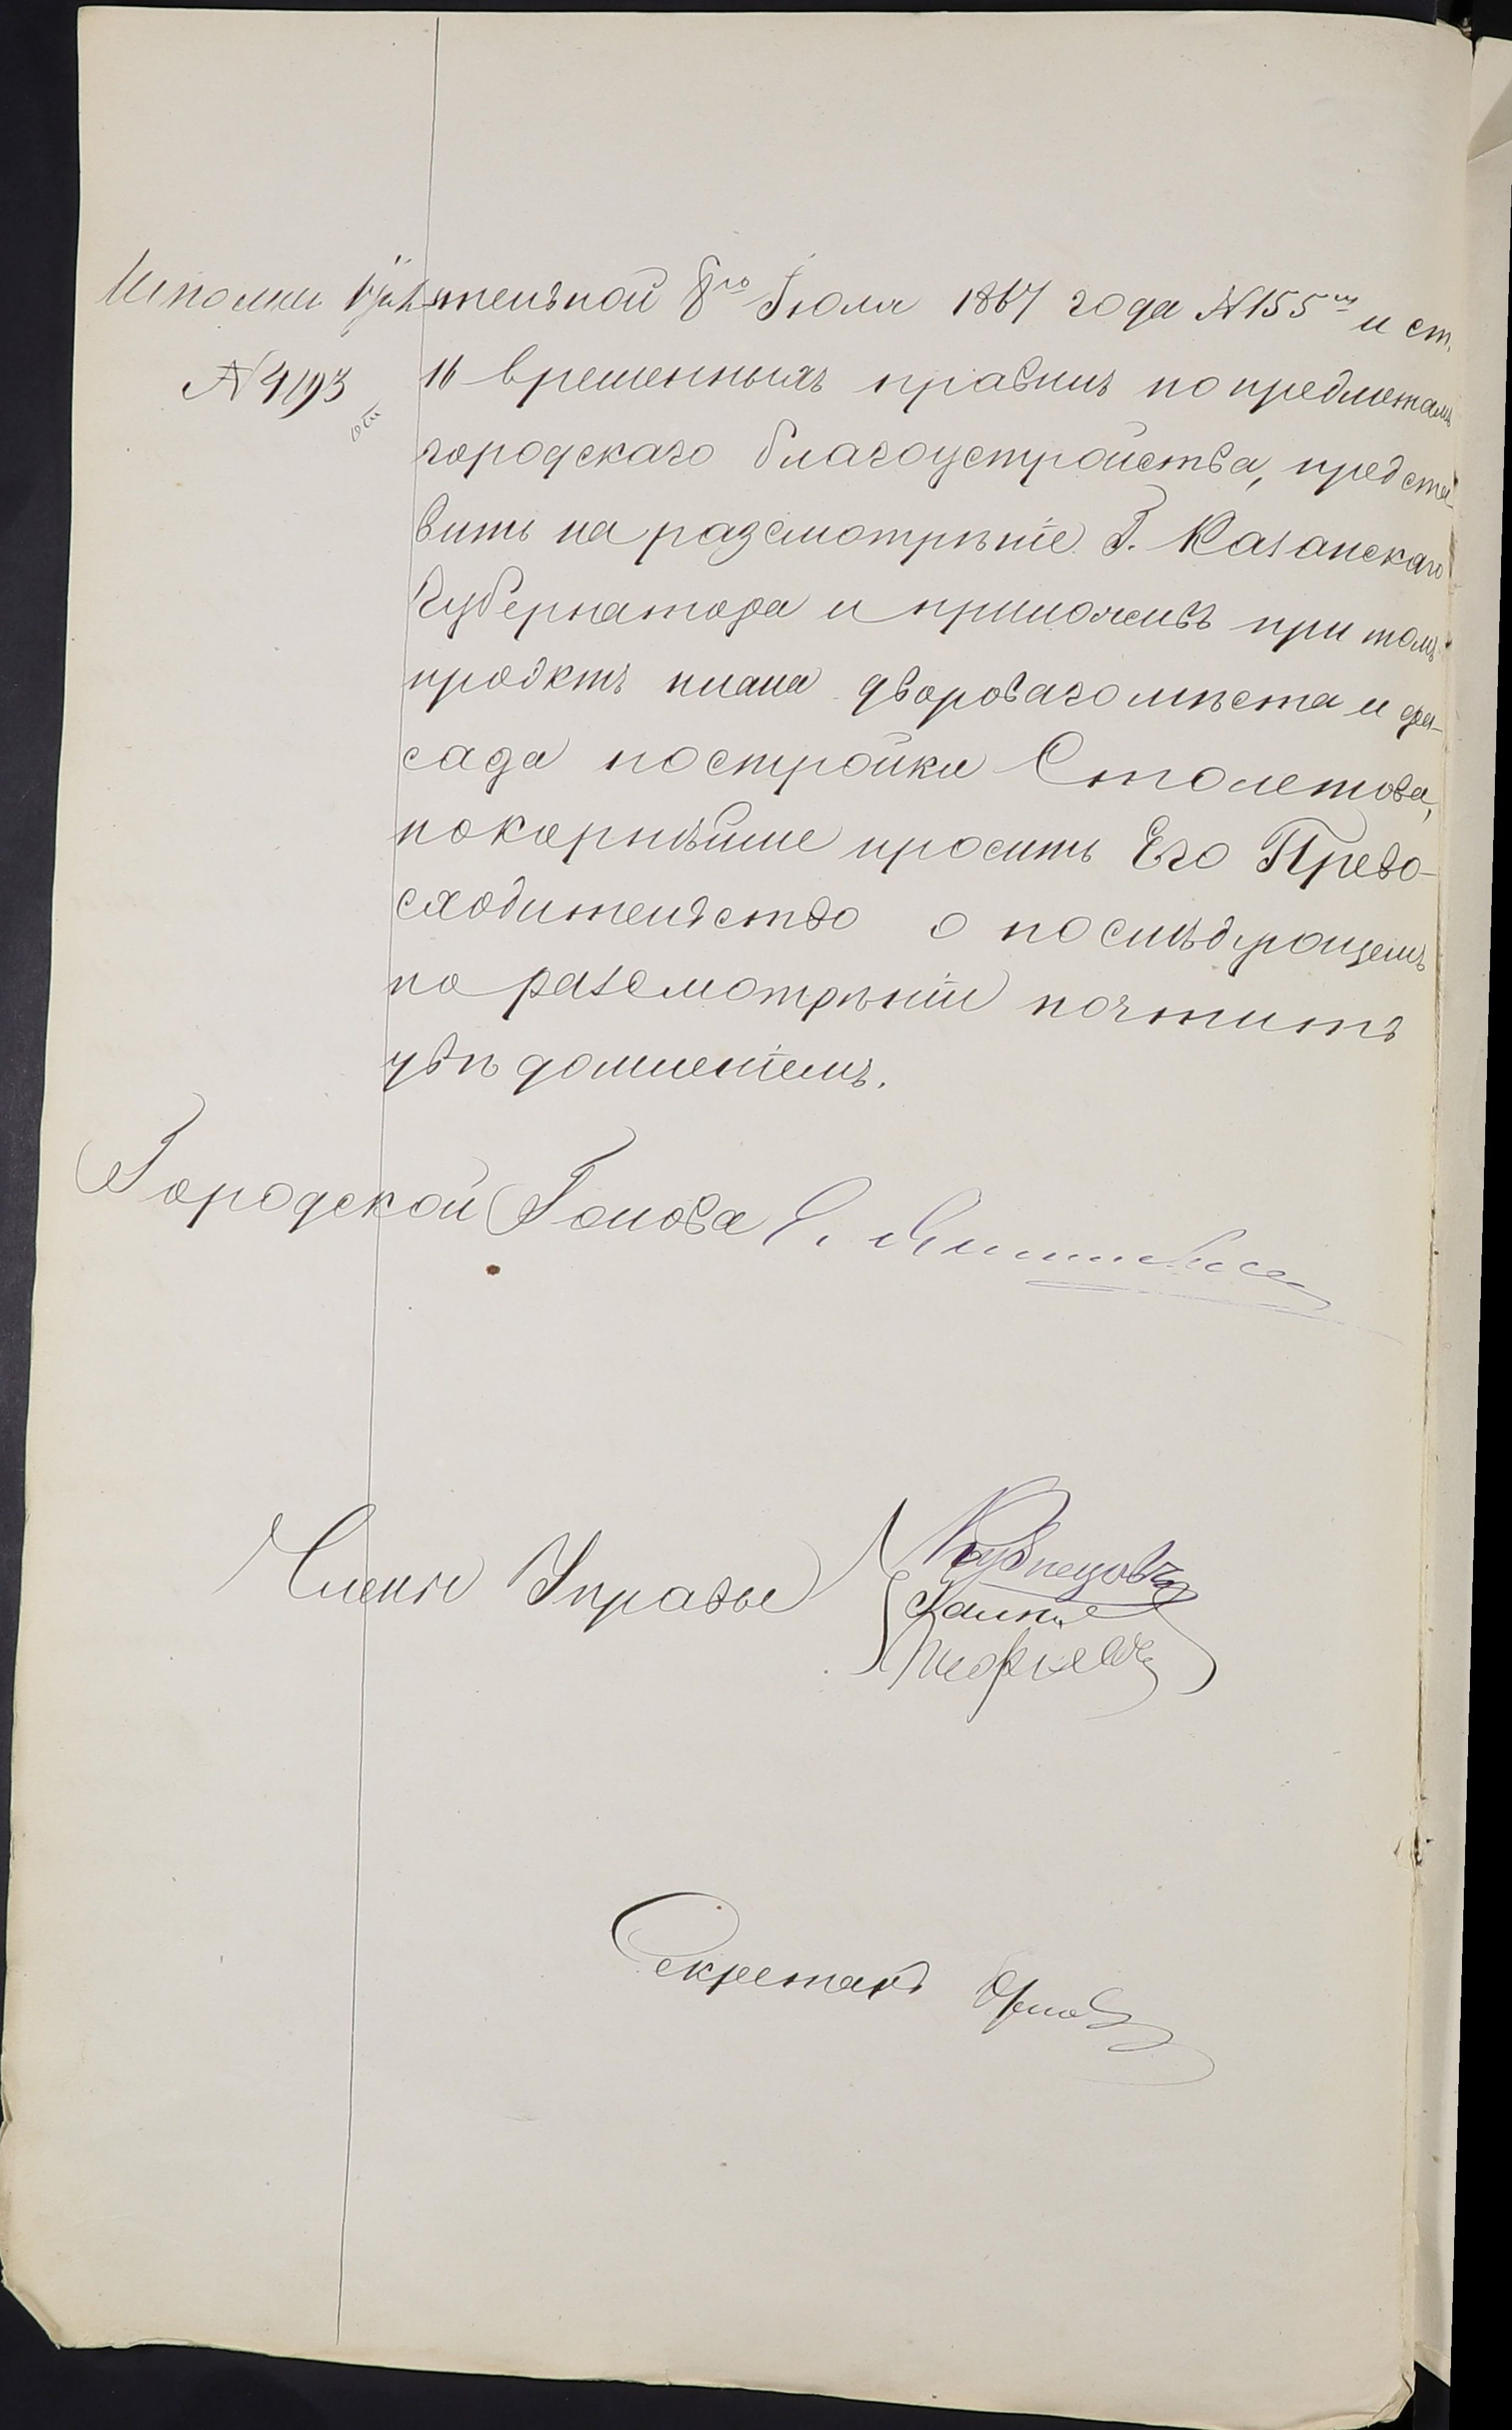 Исполн.
№ 4193
тельной 8го Іюля 1867 года № 155му и ст.
16 временныхъ правилъ по предметамъ
городскаго благоустройства, предста-
вить на разсмотрѣніе Г. Казанскаго
Губернатора и приложивъ при томъ
проэктъ плана двороваго мѣста и фа-
сада постройки Столетова,
покорнѣйше просить Его Прево-
сходительство о послѣдующемъ
по разсмотрѣніи почтить
увѣдомленіемъ.
Городской Голова
Члены Управы
Кузнецовъ
Секретарь Орловъ